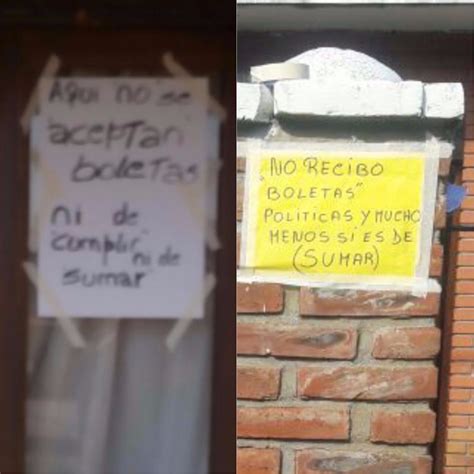 Aqui no se
aceptan
boletas
ni de
"cumplir"
ni de
sumar
"NO RECIBO
BOLETAS"
POLITICAS Y MUCHO
MENOS SI ES DE
(SUMAR)